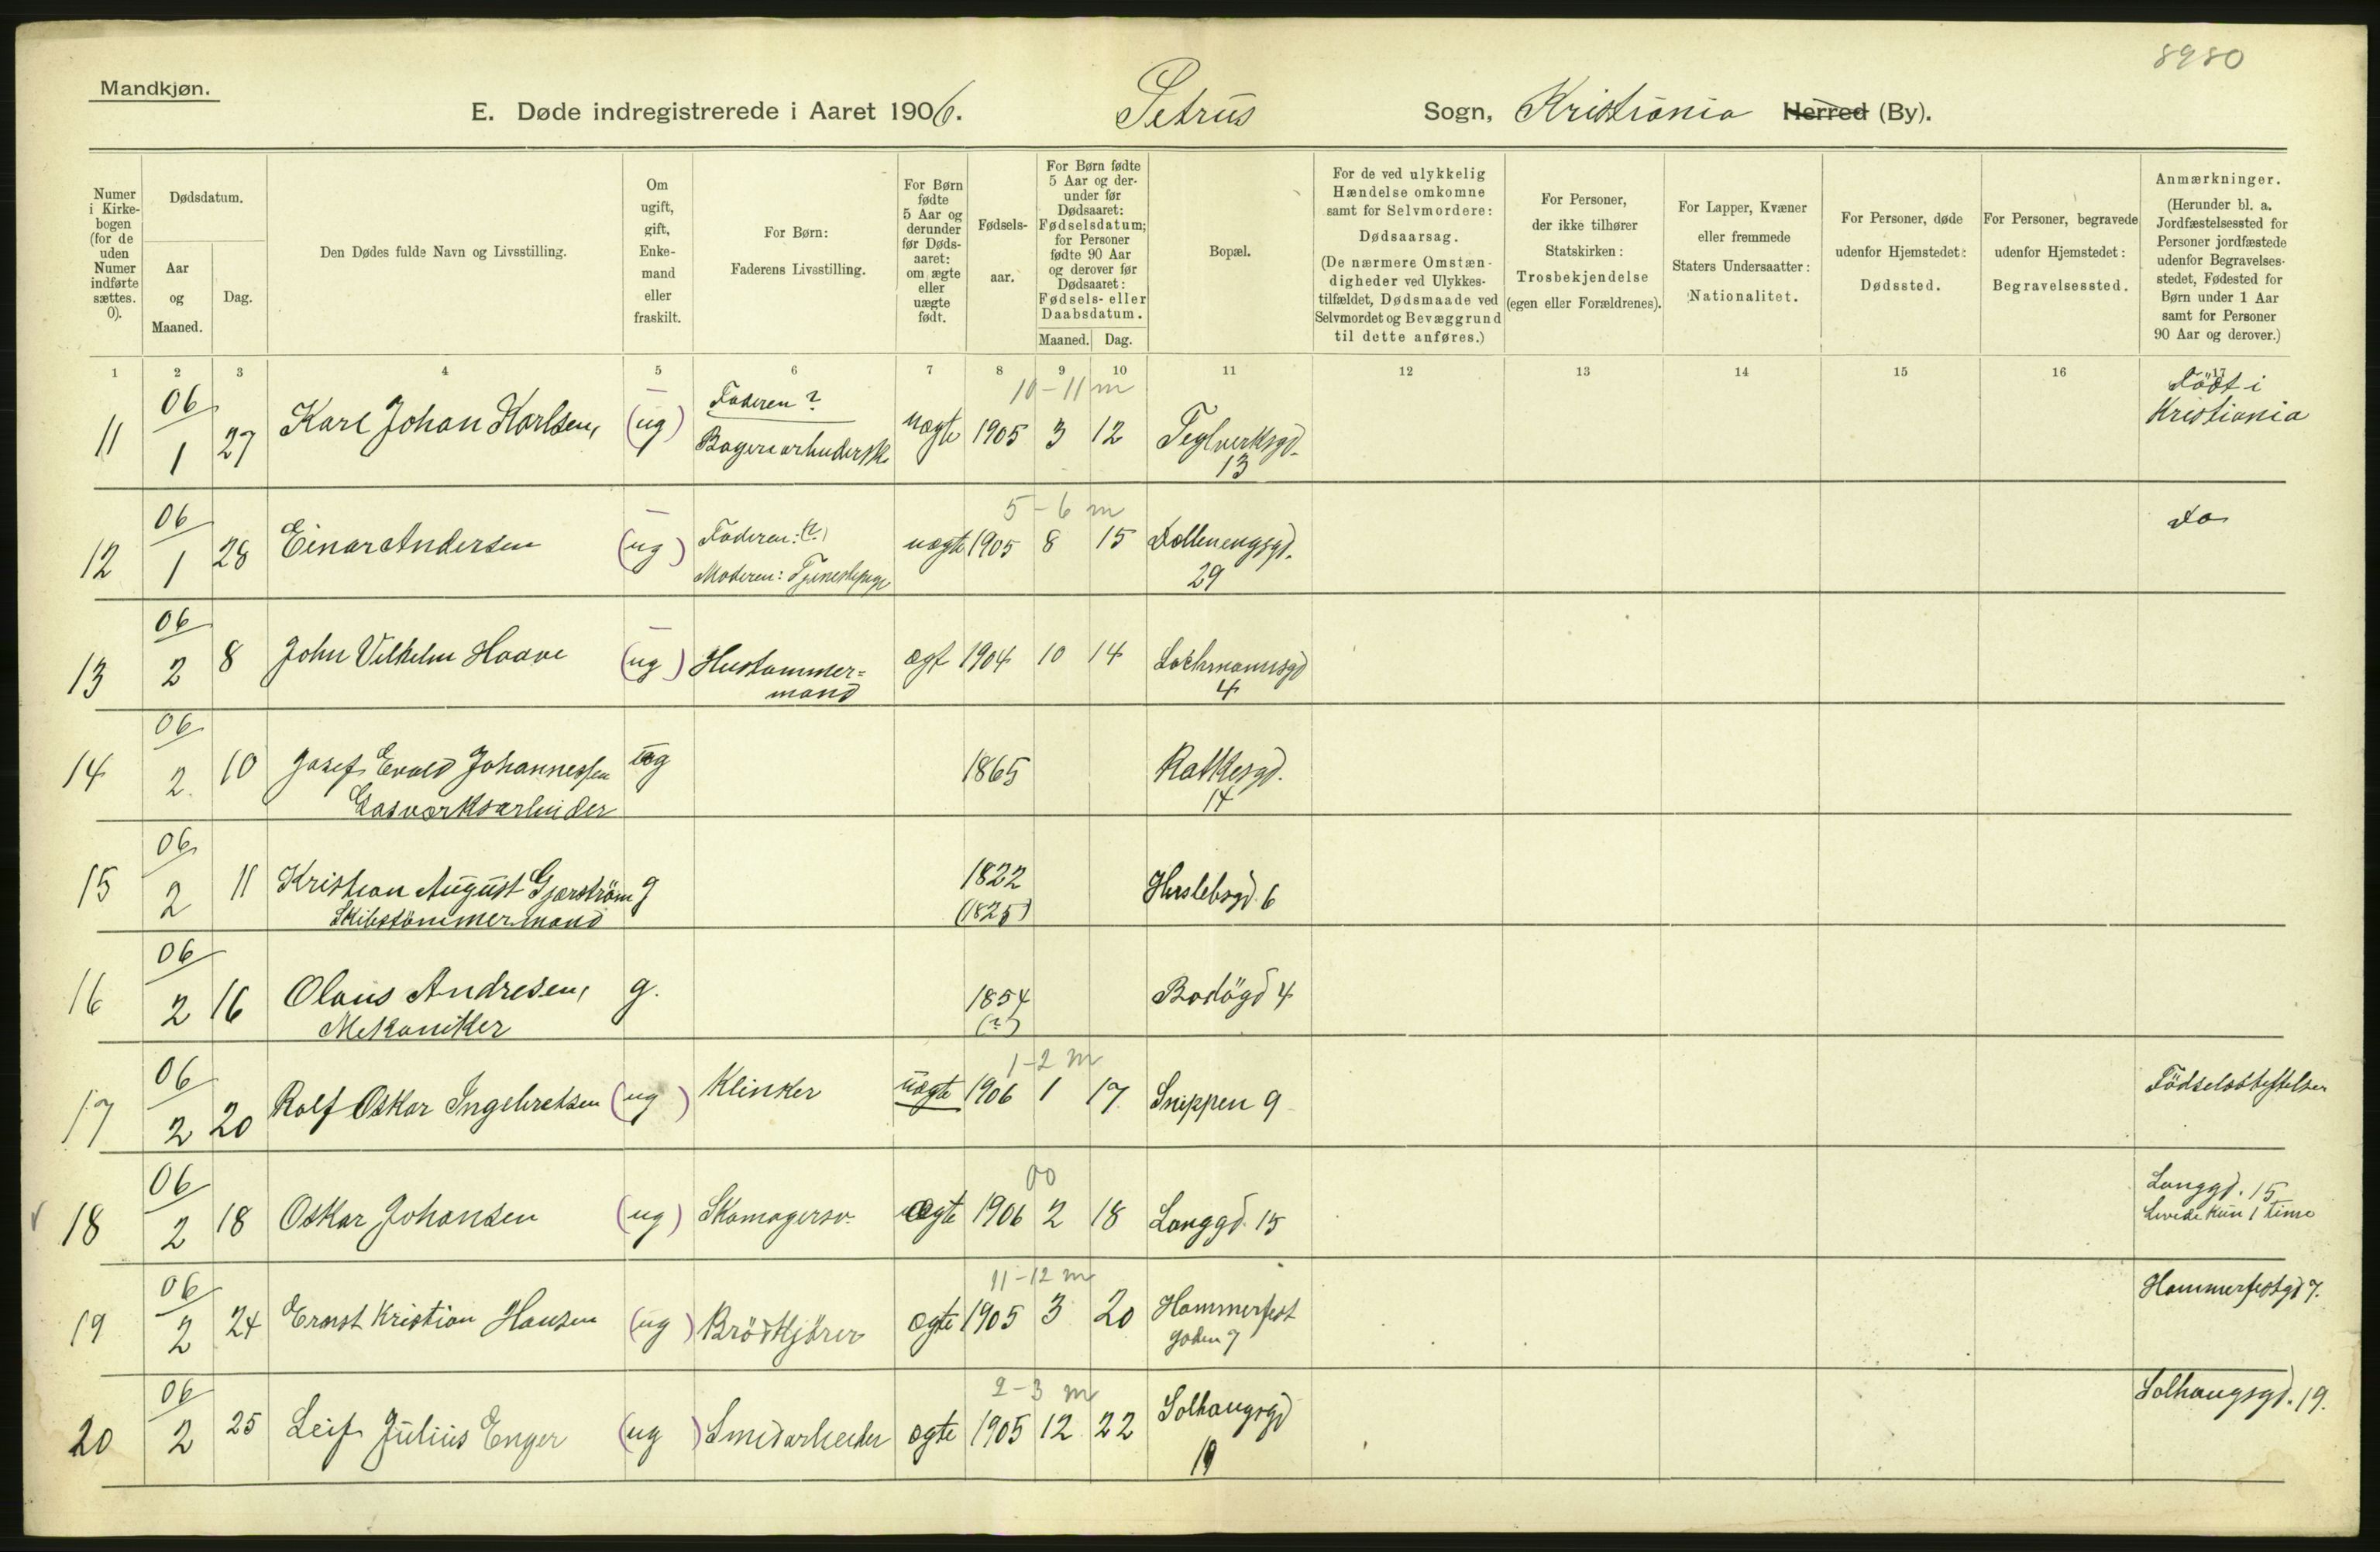 8980
Mandkjøn.
E. Døde indregistrerede i Aaret 1906. Petrus Sogn, Kristiania Herred (By).
Numer i Kirke-bogen (for de uden Numer indførte sættes. 0).
Dødsdatum.
Aar og Maaned.
Dag.
Den Dødes fulde Navn og Livsstilling.
Om ugift, gift, Enke-mand eller fraskilt.
For Børn: Faderens Livsstilling.
For Børn fødte 5 Aar og derunder før Døds-aaret: om ægte eller uægte født.
Fødsels-aar.
For Børn fødte 5 Aar og der-under før Dødsaaret: Fødselsdatum; for Personer fødte 90 Aar og derover før Dødsaaret: Fødsels- eller Daabsdatum.
Maaned. Dag.
Bopæl.
For de ved ulykkelig Hændelse omkomne samt for Selvmordere: Dødsaarsag. (De nærmere Omstæn-digheder ved Ulykkes-tilfældet, Dødsmaade ved Selvmordet og Bevæggrund til dette anføres.)
For Personer, der ikke tilhører Statskirken: Trosbekjendelse (egen eller Forældrenes).
For Lapper, Kvæner eller fremmede Staters Undersaatter: Nationalitet.
For Personer, døde udenfor Hjemstedet: Dødssted.
For Personer, begravede udenfor Hjemstedet: Begravelsessted.
Anmærkninger. (Herunder bl. a. Jordfæstelsessted for Personer jordfæstede udenfor Begravelses-stedet, Fødested for Børn under 1 Aar samt for Personer 90 Aar og derover.)
1 2 3 4 5 6 7 8 9 10 11 12 13 14 15 16 17
06 Faderen? 10-11 m Födt i
11 1 27 Karl Johan Karlsen, (ug) uægte 1905 3 12 Teglverksgd. Kristiania
13
06 5-6 m
12 1 28 Einar Andersen (ug) Faderen: (?) uægte 1905 8 15 29 Do
Moderen: Tjenestepige
06
13 2 8 John Vilhelm Haave (ug) Hustømmer= ægt 1904 10 14 Lochmannsgd
mand 4
06
14 2. 10 Josef Evald Johannessen ug 1865 Rathkesgd.
Gasværksarbeider 14
06
15 2 11 Kristian August g 1822 Herslebsgd. 6
Skibstömmermand (1825)
06
16 2 16 Olaus Andresen, g. 1854 Bodögd 4
Mekaniker (?)
06 1-2 m
17 2 20 Rolf Oskar Ingebretsen (ug) Klinker uægte 1906 1 17 Snippen 9 Födselsstiftelsen
06 00 Langgd. 15
18 2 18 Oskar Johansen (ug) Skomagersv. ægte 1906 2 18 Langgd. 15 Levede kun 1 time
06 11-12 m
19 2 24 Ernst Kristian Hansen (ug) Brödkjörer ægte 1905 3 20 Hammerfest Hammerfestgd 7.
gaden 7
06 2-3 m
20 2 25 Leif Julius Enger (ug) Smedarbeider ægte 1905 12 22 Solhaugsgd Solhaugsgd. 19.
19